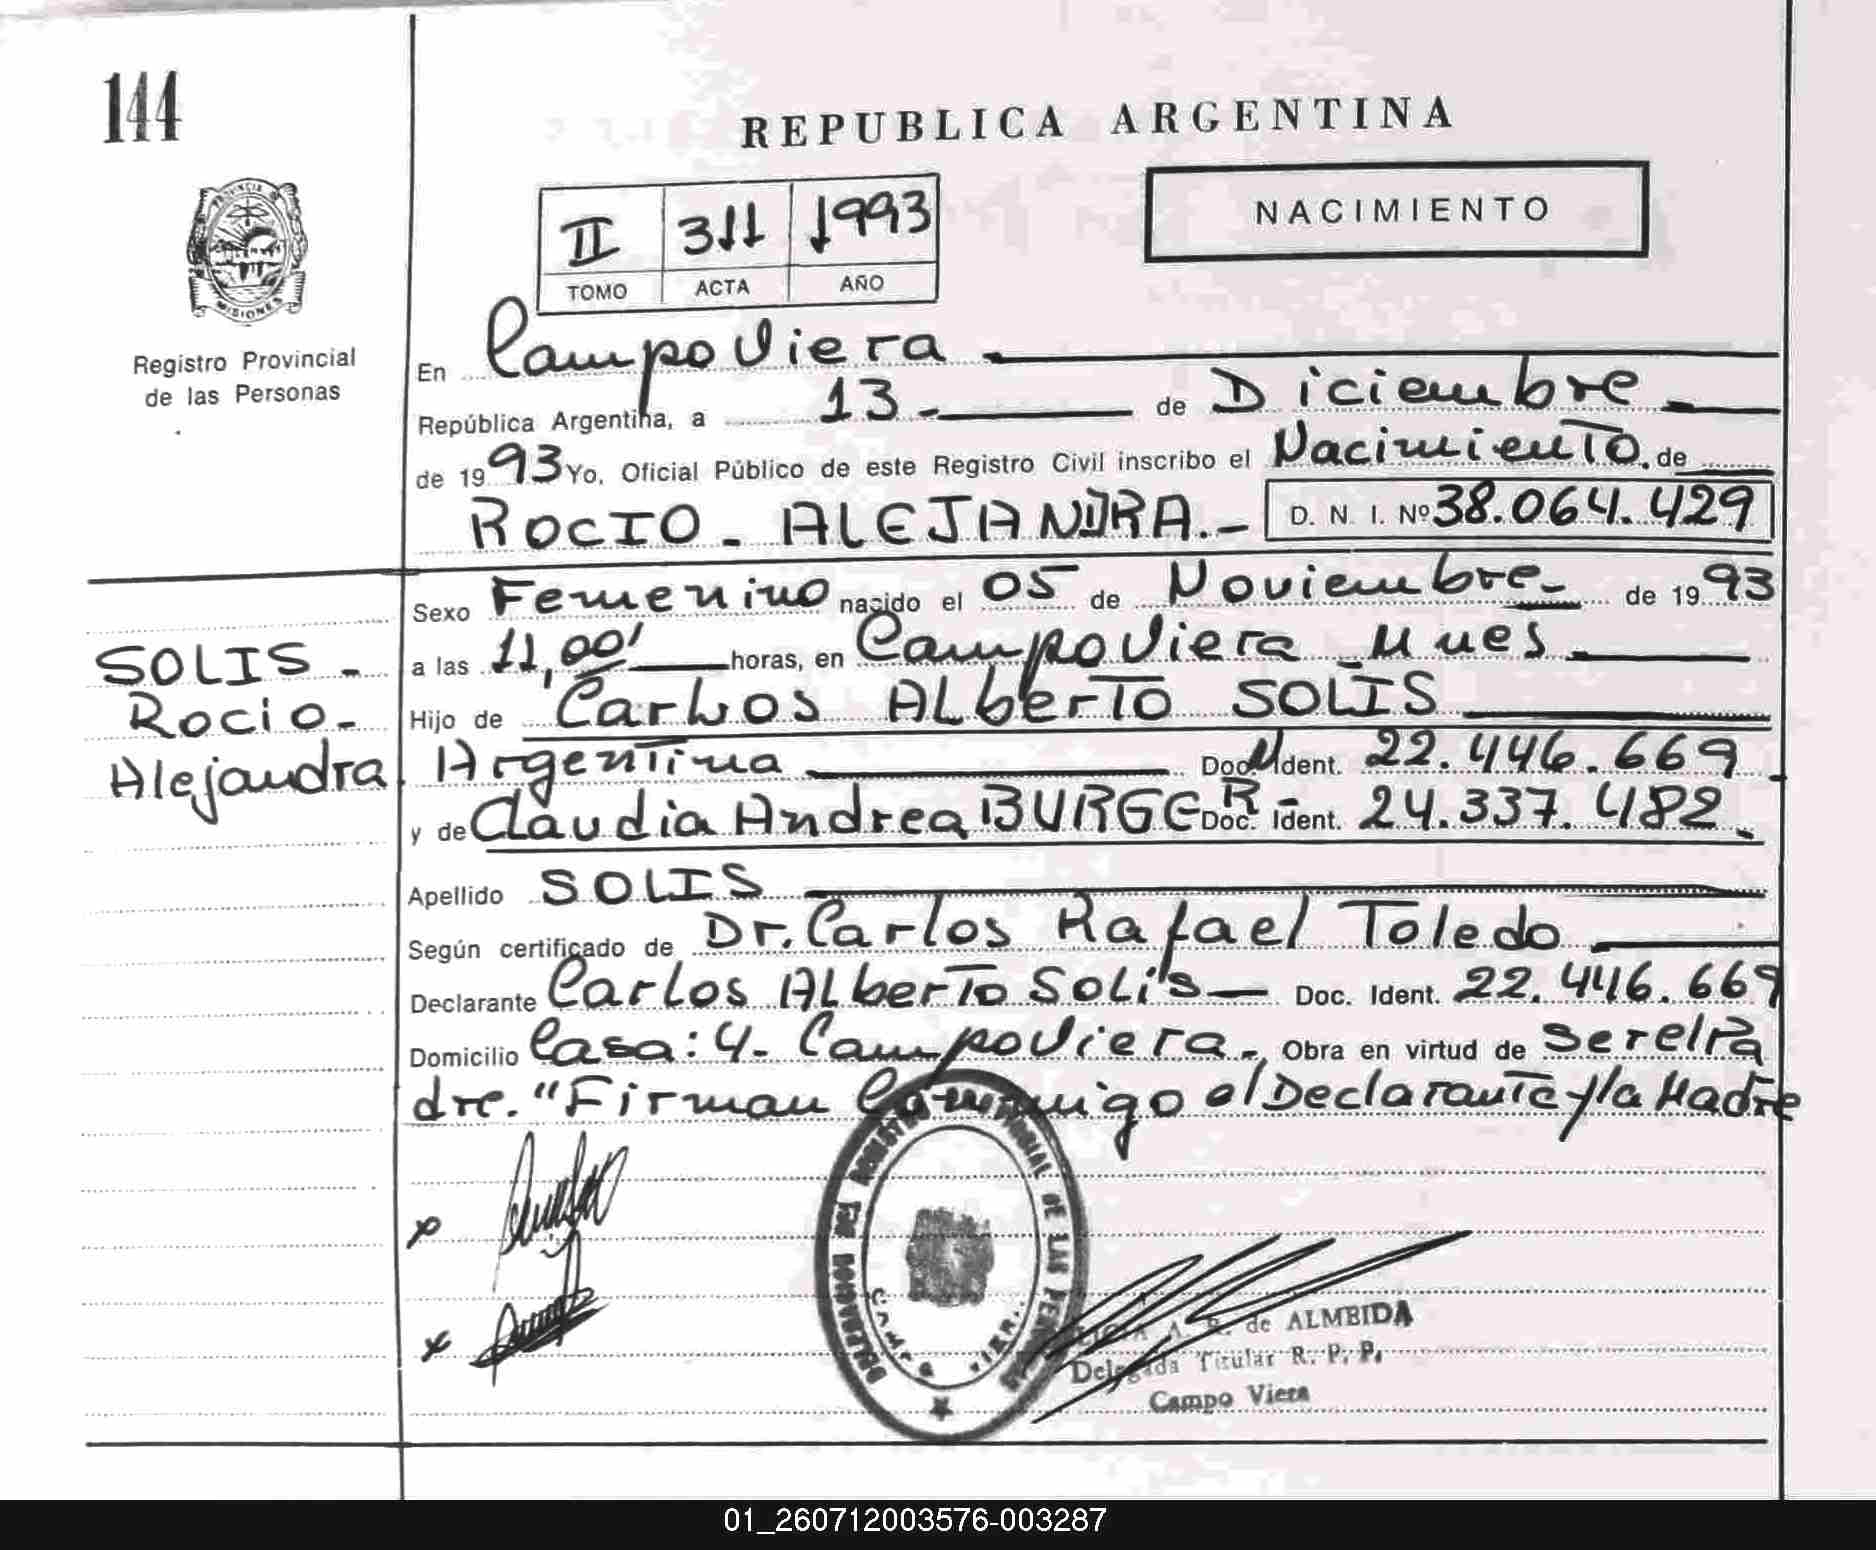 144
REPUBLICA ARGENTINA
NACIMIENTO
II 311 1993
TOMO ACTA AÑO
PROVINCIA DE
MISIONES
Registro Provincial
de las Personas
En Campo Viera
República Argentina, a 13 - de Diciembre
de 1993 Yo, Oficial Público de este Registro Civil inscribo el Nacimiento de
ROCIO - ALEJANDRA.- D. N. I. Nº 38.064.429
Sexo Femenino nacido el 05 de Noviembre - de 1993
a las 11,00' horas, en Campo Viera - Mnes -
Hijo de Carlos ALberTo SOLIS
Argentina Doc. Ident. 22.446.669
y de Claudia Andrea BURGER - Doc. Ident. 24.337.482.
SOLIS -
Rocio -
Alejandra.
Apellido SOLIS
Según certificado de Dr. Carlos Rafael Toledo
Declarante Carlos ALberTo SOLis - Doc. Ident. 22.446.669
Domicilio Casa: 4 - Campo Viera - Obra en virtud de ser el Pa
dre. "Firman Conmigo el Declarante y la Madre
x
x
A. R. de ALMEIDA
Delegada Titular R. P. P.
Campo Viera
01_260712003576-003287